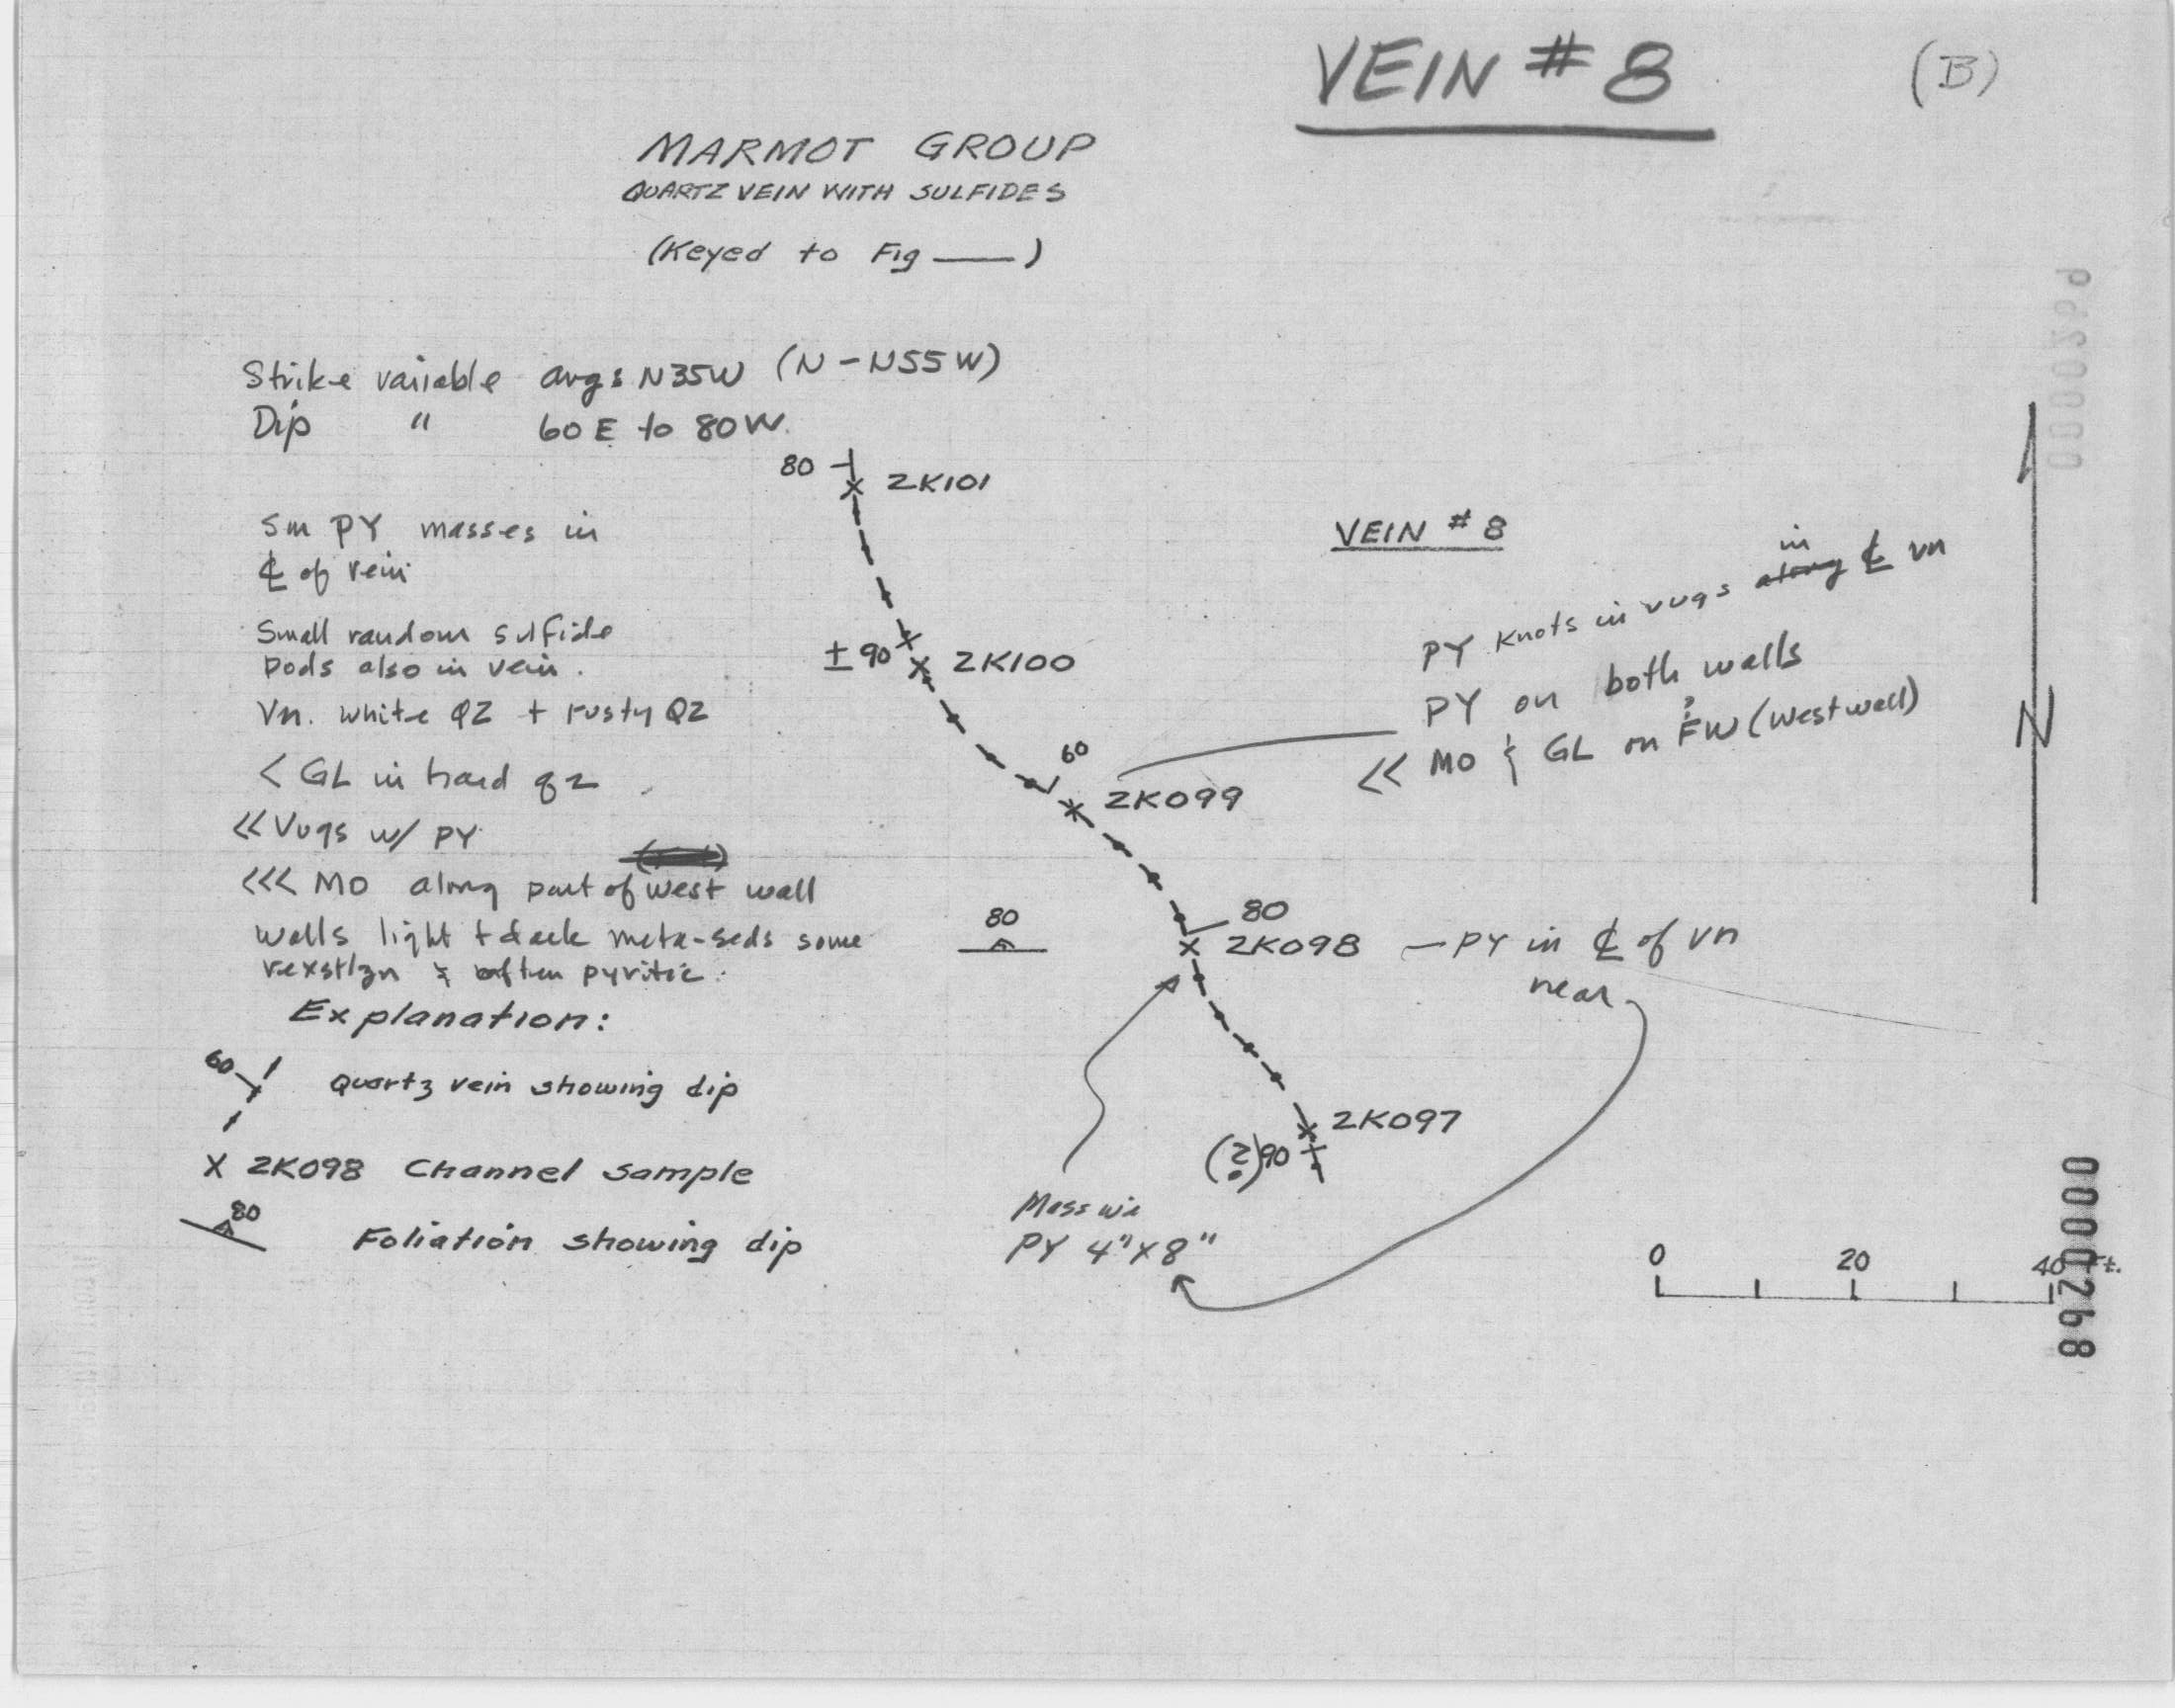 VEIN # 8
(B)
MARMOT GROUP
QUARTZ VEIN WITH SULFIDES
(Keyed to Fig ___)
Strike variable avgs N35W (N-N55W)
Dip " 60E to 80W.
80
ZK101
Sm PY masses in
℄ of vein
Small random sulfide
pods also in vein.
Vn. white QZ + rusty QZ
< GL in hard qz
<< Vugs w/ PY
<<< MO along part of west wall
walls light + dark meta-seds some
rexstlzn & often pyritic.
± 90
ZK100
60
ZK099
VEIN # 8
in
PY knots in vugs along ℄ vn
PY on both walls
<< MO & GL on FW (West wall)
N
80
80
ZK098 — PY in ℄ of vn
near
ZK097
(?)90
Massive
PY 4"x8"
Explanation:
60
Quartz vein showing dip
X ZK098 Channel sample
80
Foliation showing dip
0 20 40 Ft.
0000268